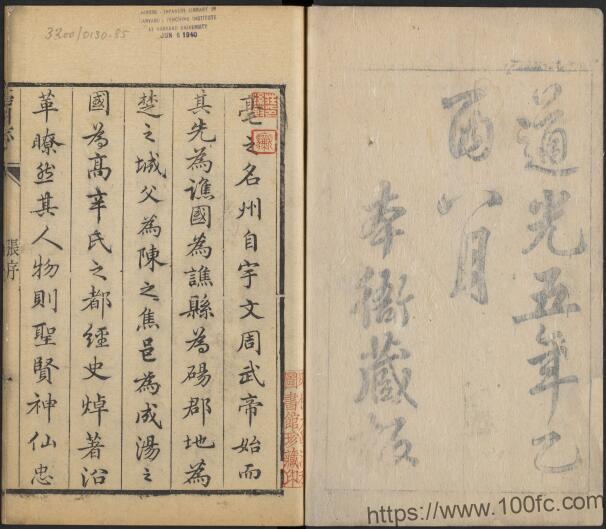 道光五年乙
酉八月
本衙藏板
3200/0130.85
CHINESE-JAPANESE LIBRARY OF
HARVARD-YENCHING INSTITUTE
AT HARVARD UNIVERSITY
JUN 6 1940
亳之名州自宇文周武帝始而
其先為譙國為譙縣為碭郡地為
楚之城父為陳之焦邑為成湯之
國為高辛氏之都經史焯著沿
革瞭然其人物則聖賢神仙忠
張序
圖書館珍藏印
https://www.100fc.com